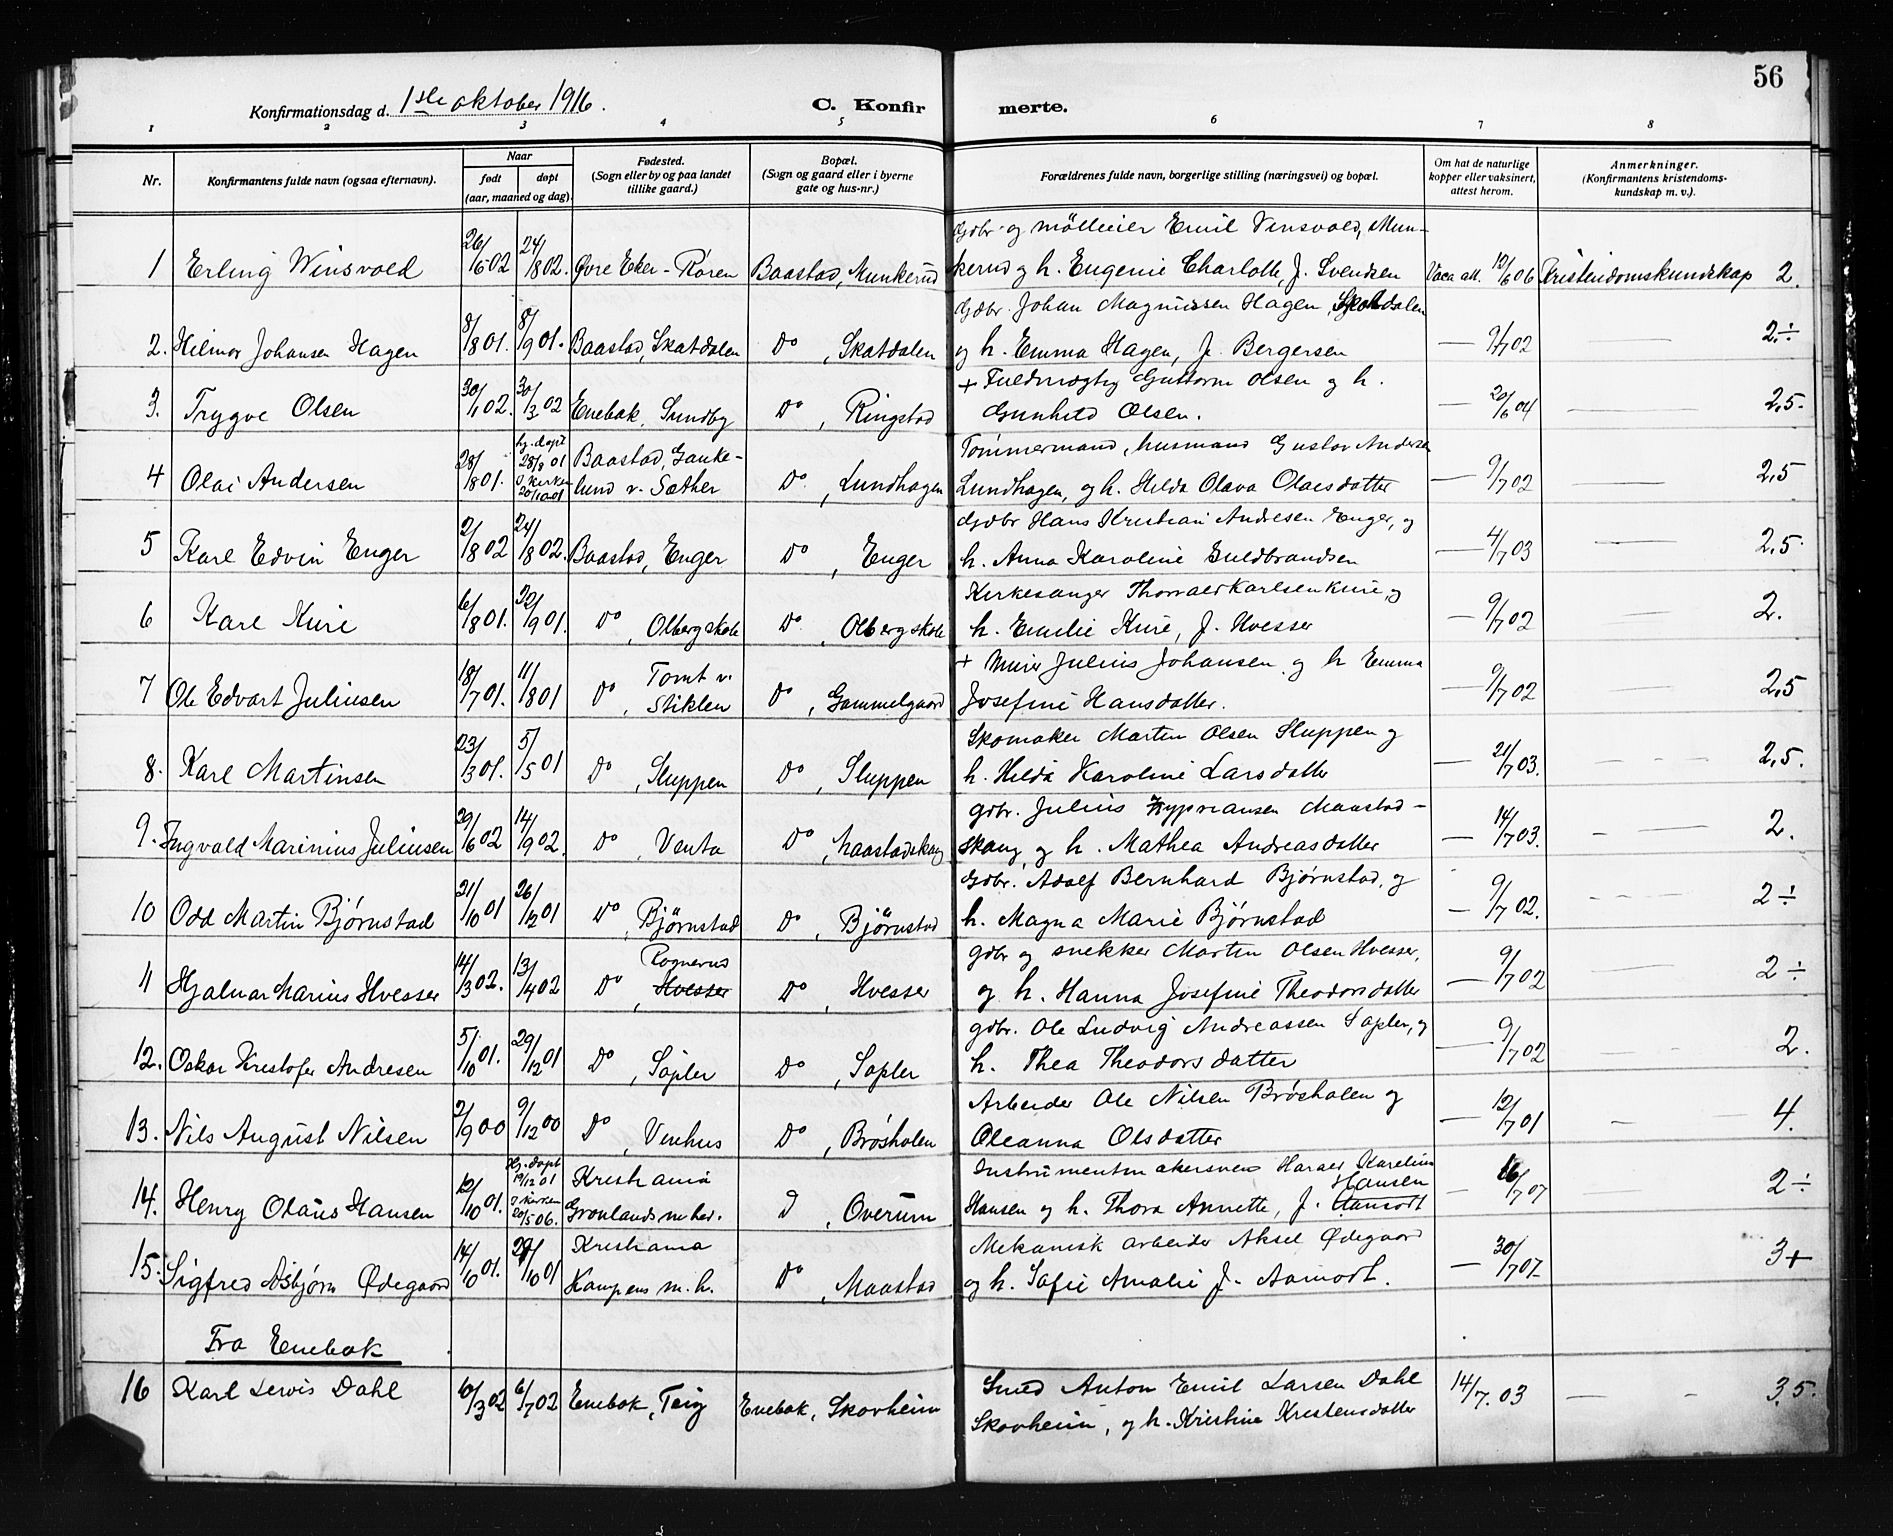 56
Konfirmationsdag d. 1ste oktober 1916.
C. Konfirmerte.
1 2 3 4 5 6 7 8
Nr. Konfirmantens fulde navn (ogsaa efternavn). Naar født døpt (aar, maaned og dag). Fødested. (Sogn eller by og paa landet tillike gaard.) Bopæl. (Sogn og gaard eller i byerne gate og hus-nr.) Forældrenes fulde navn, borgerlige stilling (næringsvei) og bopæl. Om hat de naturlige kopper eller vaksinert, attest herom. Anmerkninger. (Konfirmantens kristendomskundskap m. v.).
1 Erling Winsvold 26/5 02 24/8 02. Øvre Eker - Koren Baastad, Munkerud Gdbr. og mölleeier Emil Vinsvold, Mun-
kerud og h. Eugenie Charlotte, f. Svendsen Vacc. att. 12/6 06 Kristendomskundskap 2.
2. Hilmar Johansen Hagen 8/8 01. 8/9 01. Baastad, Skatdalen Do, Skatdalen Gdbr. Johan Magnussen Hagen, Skatdalen
og h. Emma Hagen, f. Bergersen — 9/7 02 — 2÷
3. Trygve Olsen 30/1 02. 30/3 02 Enebak, Sundby Do Ringstad + Fuldmægtig Guttorm Olsen og h.
Gunhild Olsen. — 20/6 04 — 2,5.
4 Olai Andersen 28/8 01. hj. døpt 28/8 01 i kirken 20/10 01 Baastad, Gauke-
lund v. Sæther Do, Lundhagen Tömmermand, husmand Gustav Andersen
Lundhagen, og h. Hilda Olava Olaisdatter — 9/7 02 — 2,5
5 Karl Edvin Enger 2/8 02 24/8 02. Baastad, Enger Do, Enger Gdbr Hans Kristian Andresen Enger, og
h. Anna Karoline Guldbrandsen — 4/7 03 — 2,5
6 Kare Kure 6/8 01. 22/9 01. Do, Olbergskole Do, Olbergskole Kirkesanger Thorvald Karlsen Kure, og
h. Emilie Kure, f. Hvesser — 9/7 02 — 2.
7 Ole Edvart Juliusen 18/7 01. 11/8 01 Do, Tomt v.
Stiklen Do, Gammelgaard + Murer Julius Johansen og h Emma
Josefine Hansdatter. — 9/7 02 — 2,5
8. Karl Martinsen 23/3 01. 5/5 01 Do, Sluppen Do, Sluppen Skomaker Martin Olsen Sluppen og
h. Hilda Karoline Larsdatter — 21/7 03. — 2,5.
9. Ingvald Marinius Juliusen 29/6 02 14/9 02. Do, Venta Do, Maastadskaug gdbr. Julius Kyprian­sen Maastad-
skaug, og h. Mathea Andreasdatter — 14/7 03. — 2.
10 Odd Martin Bjørnstad 21/10 01 26/12 01 Do, Bjørnstad Do, Bjørnstad Gdbr. Adolf Bernhard Bjørnstad, og
h. Magna Marie Bjørnstad — 9/7 02. — 2÷
11 Hjalmar Marius Hvesser 14/3 02. 13/4 02 Do, Rognerud
Hvesser Do, Hvesser gdbr og snekker Martin Olsen Hvesser,
og h. Hanna Josefine Theodorsdatter — 9/7 02 — 2÷
12. Oskar Kristofer Andresen 5/10 01. 29/12 01 Do, Søpler Do, Søpler gdbr. Ole Ludvig Andreassen Søpler, og
h. Thea Theodorsdatter — 9/7 02 — 2.
13. Nils August Nilsen 2/9 00 9/12 00 Do, Venhus Do, Brøsholen Arbeider Ole Nilsen Brøsholen og
Oleanna Olsdatter — 12/7 01 — 4.
14. Henry Olaus Hansen 12/10 01. Hj. døpt 19/12 01 i kirken 20/5 06. Kristiania
Grønlands mehed. Do, Overum Instrumentmakersvend Harald Karelius
Hansen og h. Thora Annette, f. Hansen Aamodt — 16/7 07 2÷
15. Sigfred Asbjørn Ødegaard 14/10 01. 27/10 01 Kristiania
Kampens m. h. Do, Maastad Mekanisk arbeider Aksel Ødegaard
og h. Sofie Amalie f. Aamodt. — 30/7 07 3+
Fra Enebak
16 Karl Lewis Dahl 6/3 02 6/7 02 Enebak, Teig Enebak, Skovheim Smed Anton Emil Larsen Dahl
Skovheim, og h. Kristine Kristensdatter 14/7.03 — 3,5.